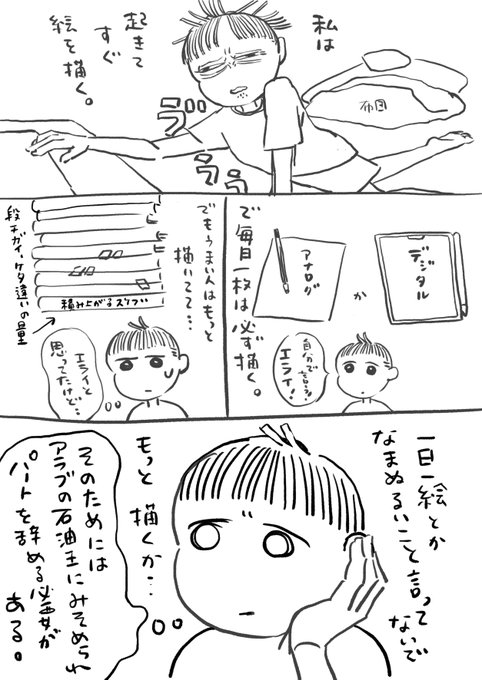 私は
起きて
すぐ
絵を描く。
布団
ゔゔぅ
で毎日一枚は必ず描く。
アナログ
か
デジタル
自分で言う!
エライ!
でもうまい人はもっと
描いてて…
積み上がるズツブ
段チガイ、ケタ違いの量
エライと
思ってたけど…
一日一絵とか
なまぬるいこと言って
ないで
もっと描くか…
そのためには
アラブの石油王にみそめられ
パートを辞める必要が
ある。